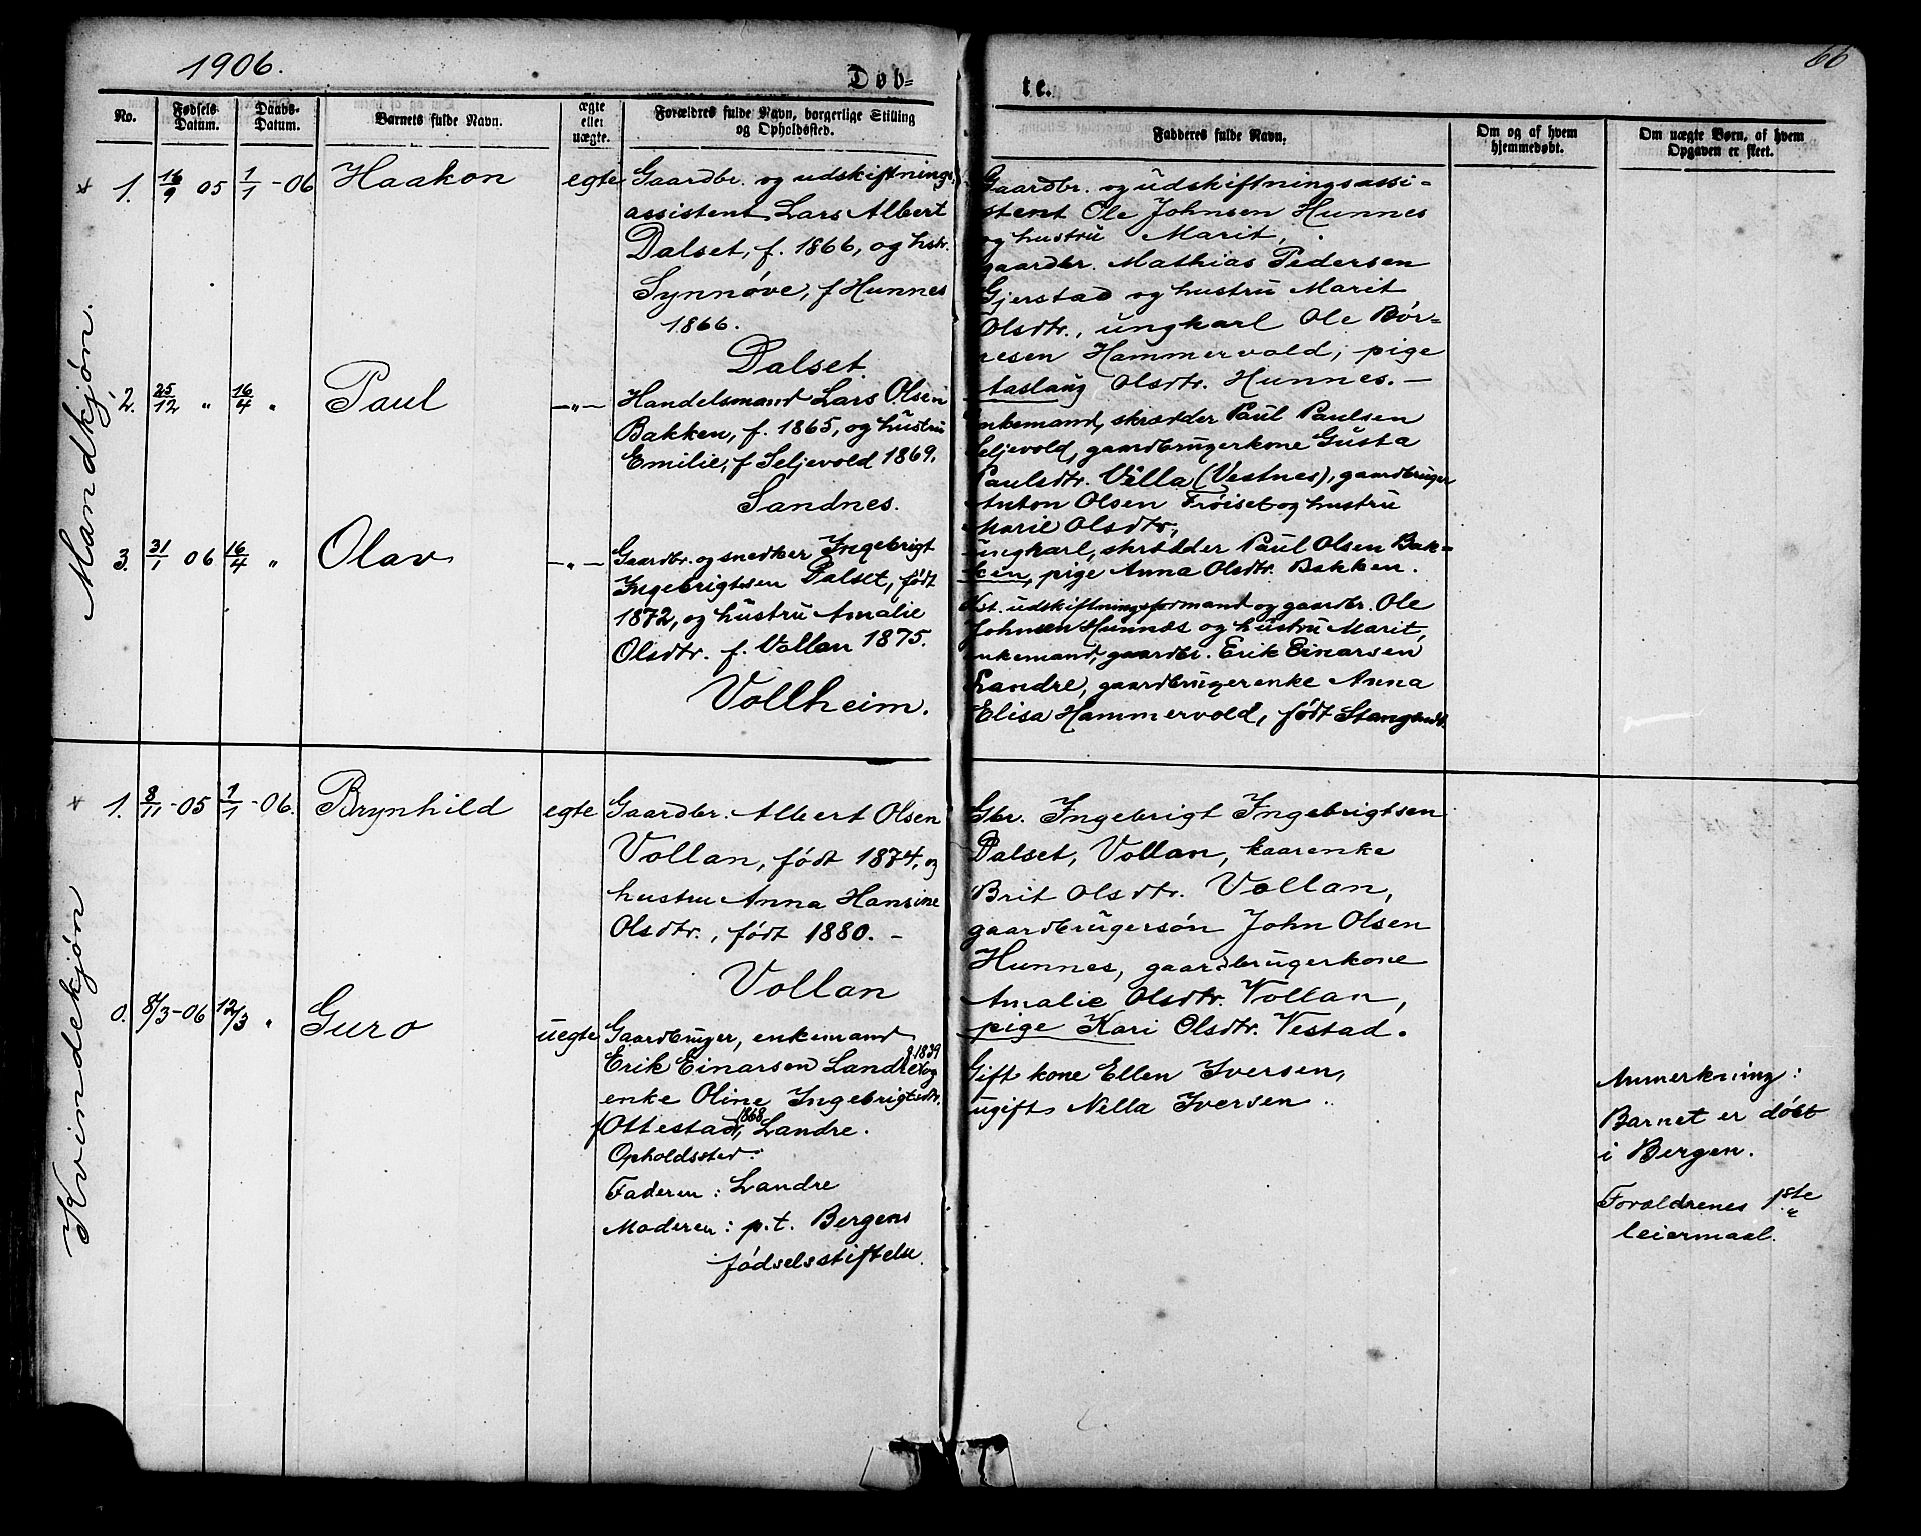 1906.
66
Døb=
te.
No.
Fødsels Datum.
Daabs-Datum.
Barnets fulde Navn.
ægte eller uægte.
Forældres fulde Navn, borgerlige Stilling og Opholdssted.
Fadderes fulde Navn.
Om og af hvem hjemmedøbt.
Om uægte Børn, af hvem Opgaven er skeet.
Mandkjøn.
1. 16/9 05 1/1-06 Haakon egte
Gaardbr. og udskiftnings-
assistent Lars Albert
Dalset, f. 1866, og hstr.
Synnøve, f Hunnes
1866.
Dalset.
Gaardbr. og udskiftningsassi-
stent Ole Johnsen Hunnes
og hustru Marit,
gaardbr. Mathias Pedersen
Gjerstad og hustru Marit
Olsdtr., ungkarl Ole Bør-
resen Hammervold, pige
Aaslaug Olsdtr. Hunnes. —
2. 25/12 " 16/4 " Paul —"—
Handelsmand Lars Olsen
Bakken, f. 1865, og hustru
Emilie, f Seljevold 1869.
Sandnes.
Enkemand, skrædder Paul Paulsen
Seljevold, gaardbrugerkone Gusta
Paulsdtr. Villa (Vestnes), gaardbruger
Anton Olsen Frøiset og hustru
Marie Olsdtr,
ungkarl, skrædder Paul Olsen Bak-
ken, pige Anna Olsdtr. Bakken.
3. 31/1 06 16/4 " Olav —"—
Gaardbr. og snedker Ingebrigt
Ingebrigtsen Dalset, født
1872, og hustru Amalie
Olsdtr. f. Vollan 1875.
Vollheim.
Kst. udskiftningsformand og gaardbr. Ole
Johnsen Hunnes og hustru Marit,
enkemand, gaardbr. Erik Einarsen
Landre, gaardbrugerenke Anna
Elisa Hammervold, født
Kvindekjøn
1. 8/11-05 1/1-06. Brynhild egte
Gaardbr. Albert Olsen
Vollan, født 1874, og
hustru Anna Hansine
Olsdtr., født 1880. -
Vollan
Gbr. Ingebrigt Ingebrigtsen
Dalset, Vollan, kaarenke
Brit Olsdtr. Vollan,
gaardbrugersøn John Olsen
Hunnes, gaardbrugerkone
Amalie Olsdtr. Vollan,
pige Kari Olsdtr. Vestad.
0. 8/3-06 12/3 " Guro uegte
Gaardbruger, enkemand
Erik Einarsen Landre f 1839 og
enke Oline Ingebrigtsdtr.
f Ottestad, 1868 Landre.
Opholdssted:
Faderen: Landre
Moderen: p.t. Bergens
fødselsstiftelse.
Gift kone Ellen Iversen,
ugift Nella Iversen.
Anmerkning:
Barnet er døbt
i Bergen.
Forældrenes 1ste
leiermaal.